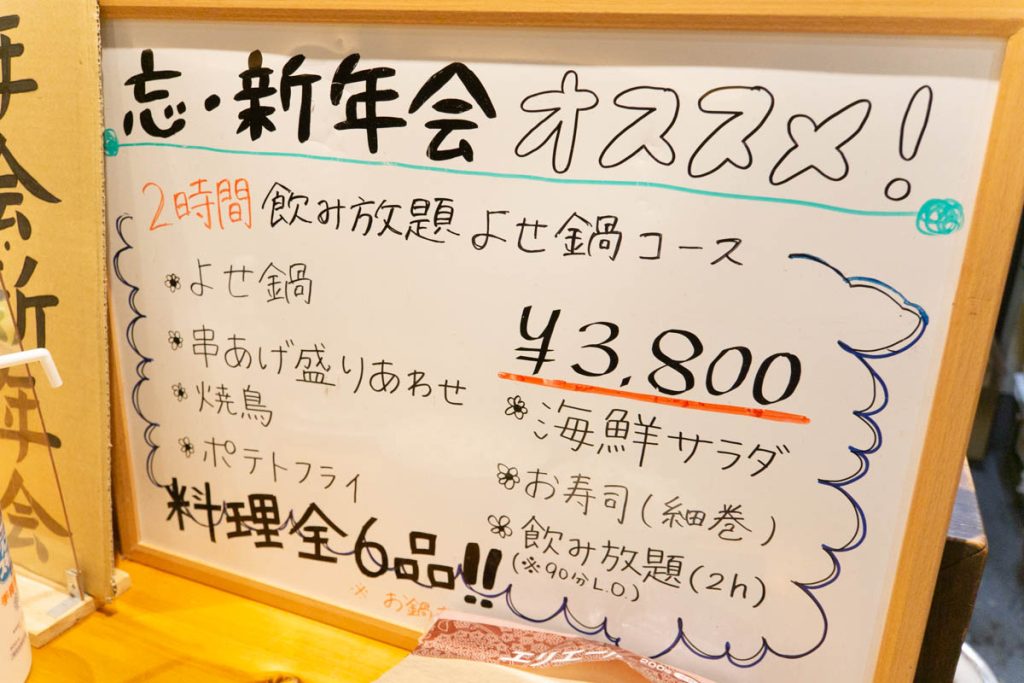 忘・新年会 オススメ!
2時間 飲み放題 よせ鍋コース
よせ鍋
串あげ盛りあわせ
焼鳥
ポテトフライ
¥3,800
海鮮サラダ
お寿司(細巻)
飲み放題(2h)
(※90分L.O)
料理全6品!!
※ お鍋
エリエール
年会・新年会